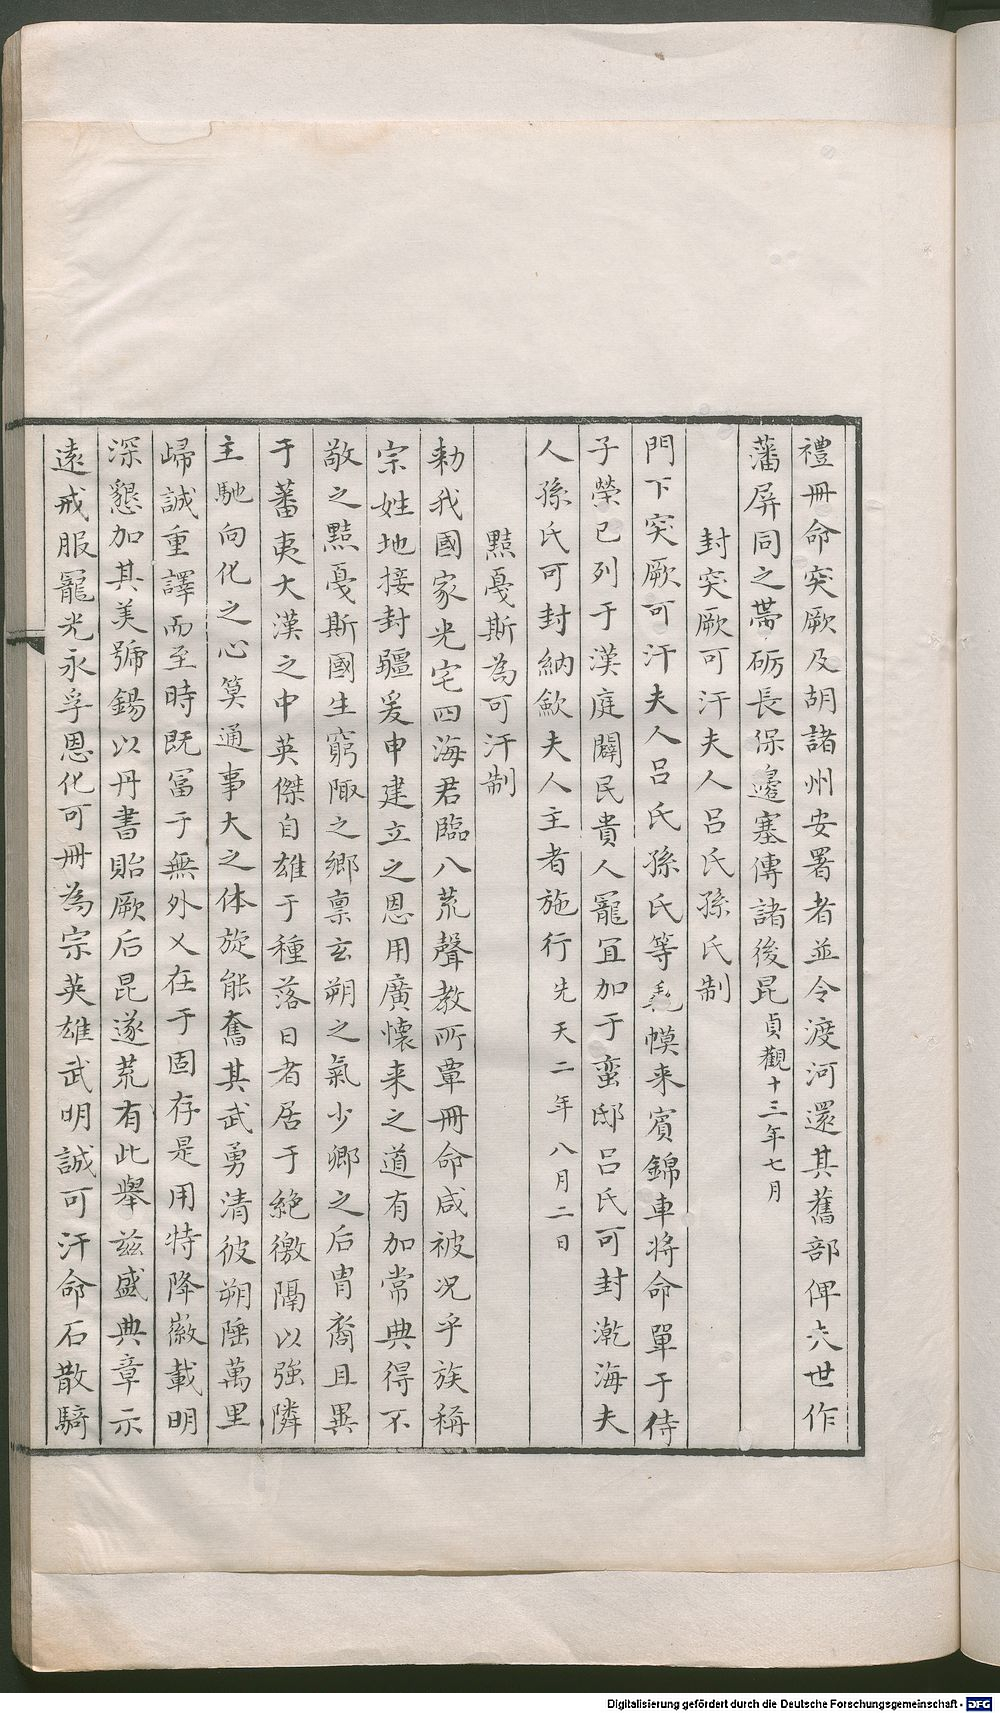 禮冊命突厥及胡諸州安署者並令渡河還其舊部俾六世作
藩屏同之帶砺長保邊塞傳諸後昆貞觀十三年七月
封突厥可汗夫人呂氏孫氏制
門下突厥可汗夫人呂氏孫氏等毳幙来賓錦車将命單于侍
子榮已列于漢庭閼民貴人寵宜加于蛮邸呂氏可封瀚海夫
人孫氏可封納歛夫人主者施行先天二年八月二日
黠戛斯為可汗制
勑我國家光宅四海君臨八荒聲教所覃冊命咸被况乎族稱
宗姓地接封疆爰申建立之恩用廣懐来之道有加常典得不
敬之黠戛斯國生窮陬之鄉禀玄朔之氣少卿之后胄裔且異
于蕃夷大漢之中英傑自雄于種落日者居于絶徼隔以強隣
主馳向化之心筭通事大之体旋能奮其武勇清彼朔陲萬里
歸誠重譯而至時既冨于無外乂在于固存是用特降徽載明
深懇加其美號錫以丹書貽厥后昆遂荒有此舉兹盛典章示
遠戒服寵光永孚恩化可冊為宗英雄武明誠可汗命石散騎
Digitalisierung gefördert durch die Deutsche Forschungsgemeinschaft - DFG